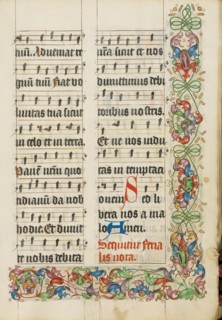 tuū. Adveniat re
gnū tuū. Fiat vo
luntas tua sicut
in celo et in terra.
Panē nr̄m quo
tidianū da nob̄
hodie. Et dimit
te nobis debita
nr̄a sicut et nos
dimittimus debi
toribus nostris.
Et ne nos indu
cas in temptaci
onem Sed li
bera nos a ma
lo Amen.
Sequitur feria
lis nota.